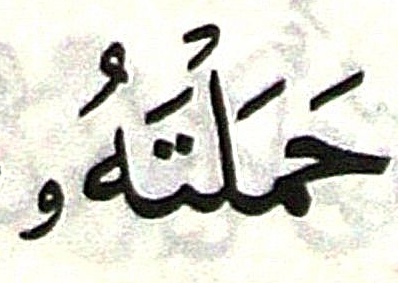 حَمَلۡتَهُۥ